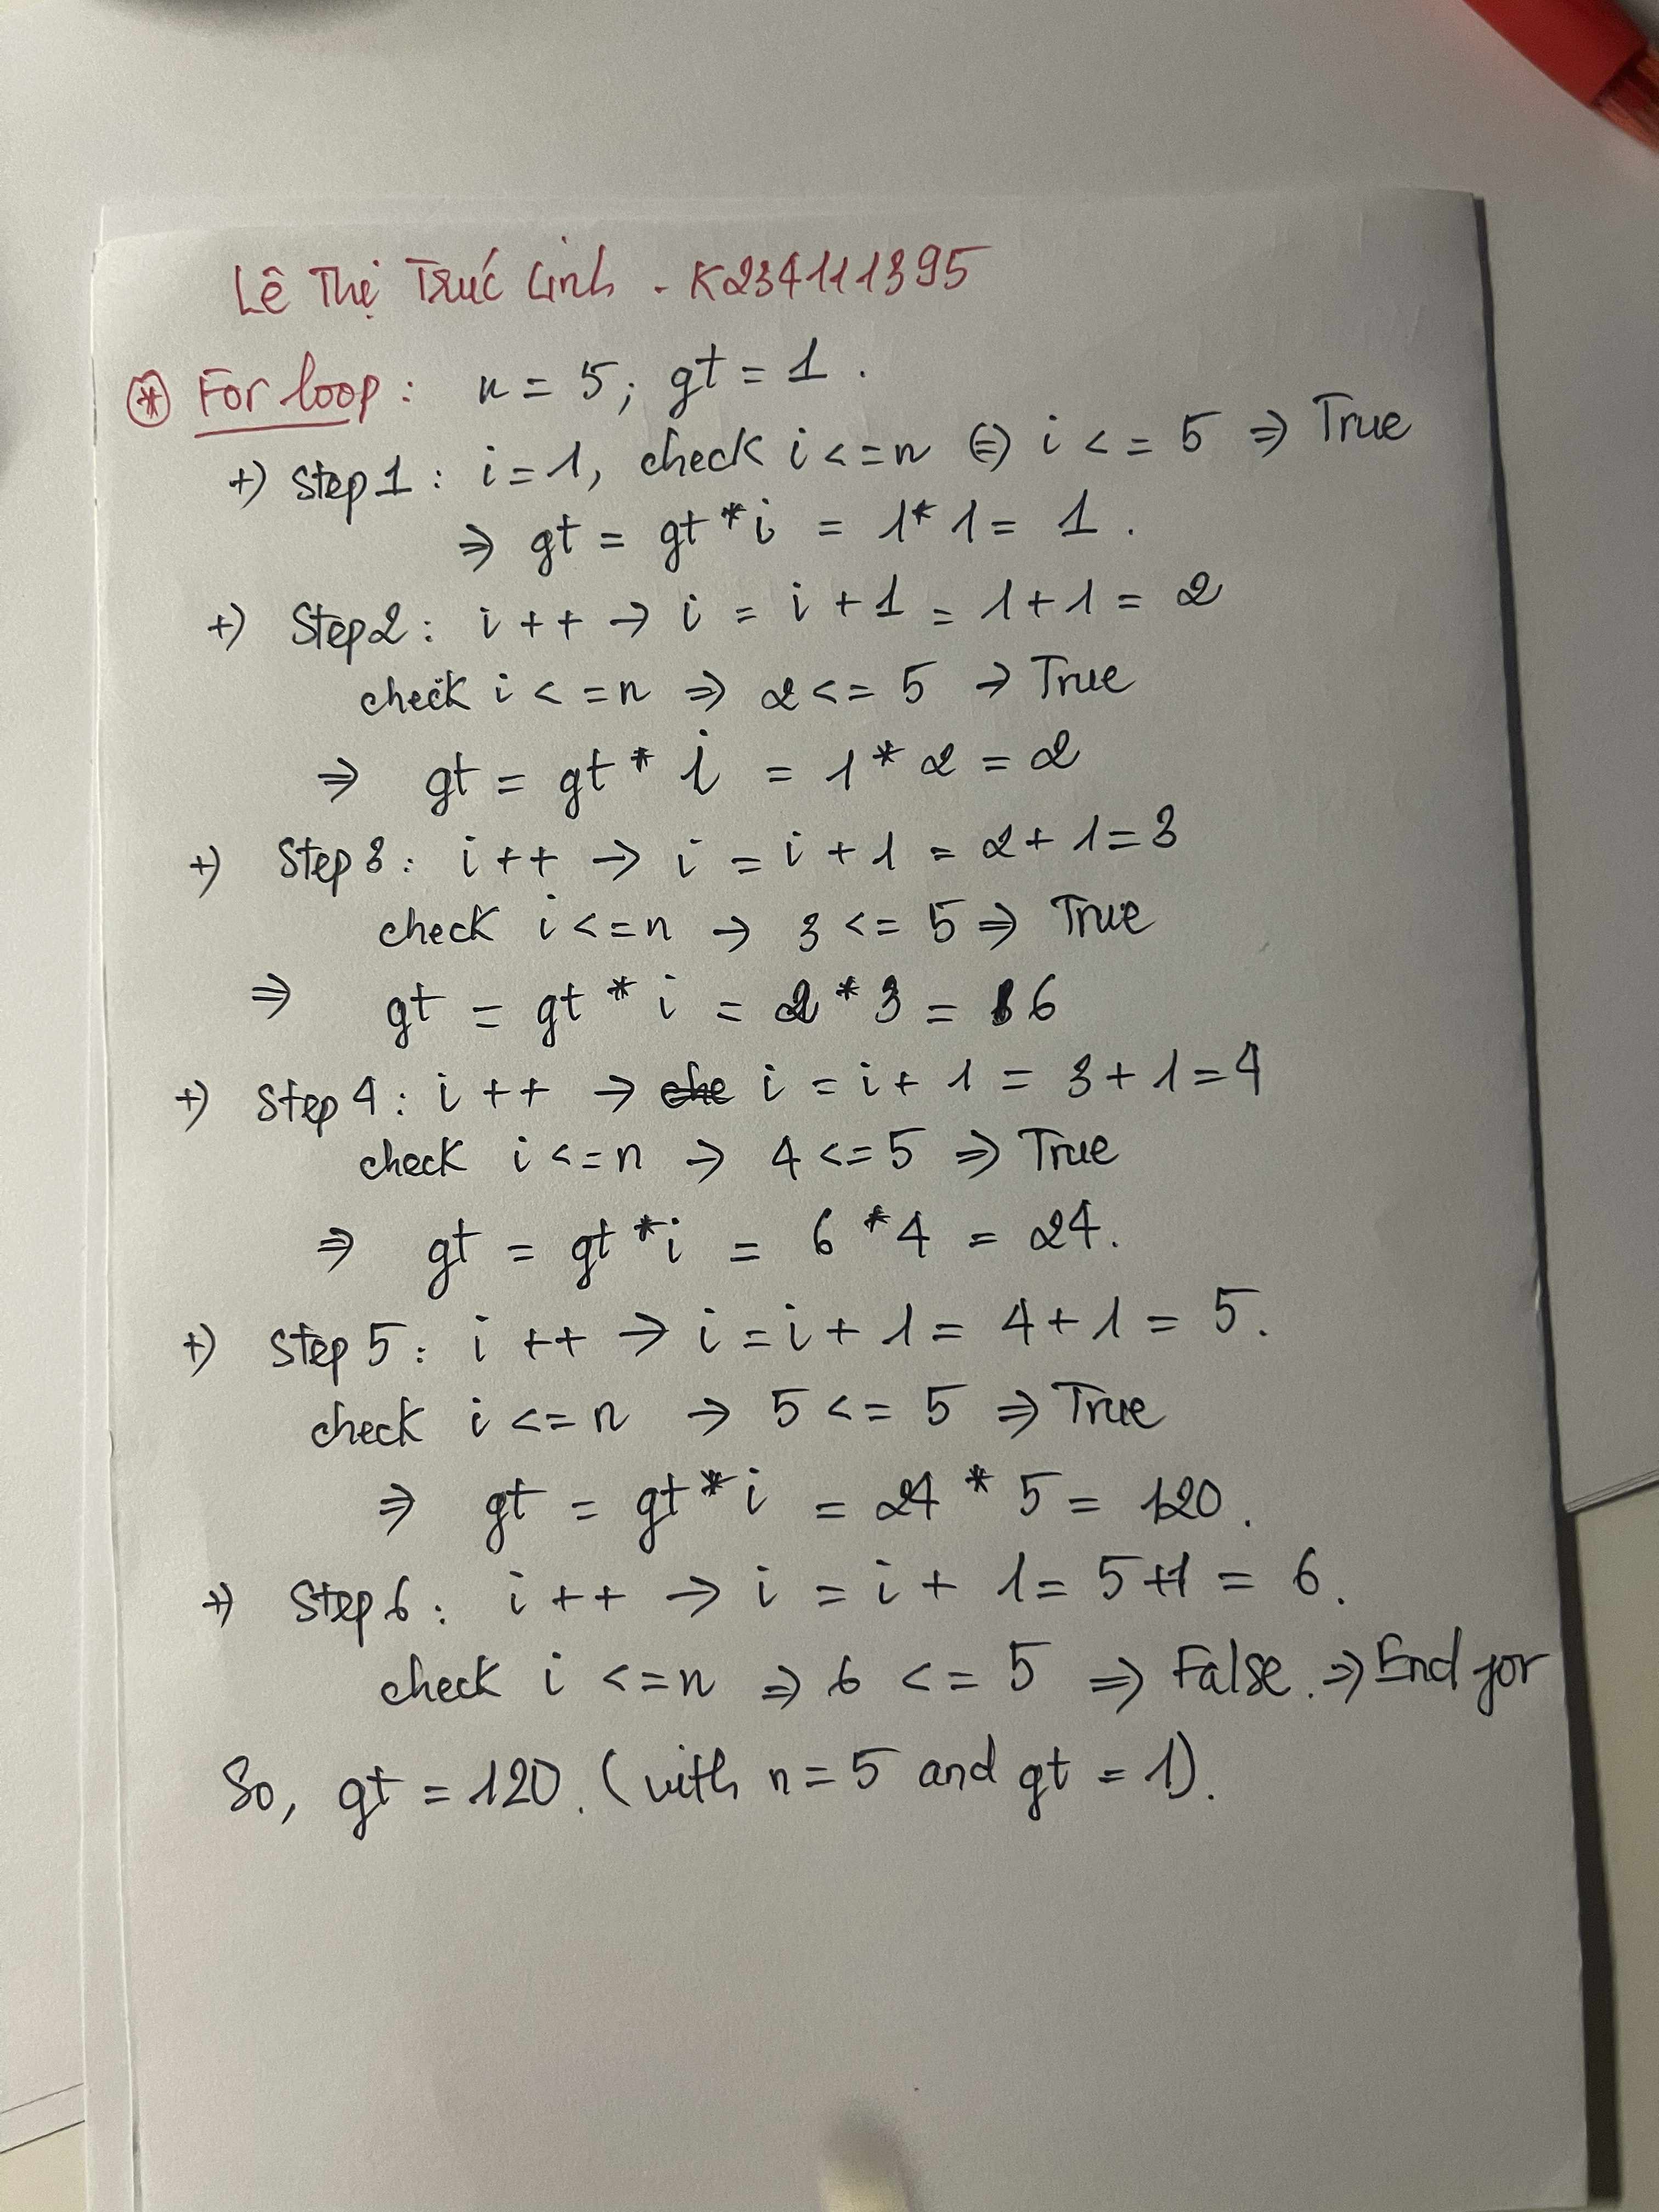 Lê Thị Trúc Linh - K234111395
⊛ For loop: n = 5; gt = 1.
+) Step 1: i = 1, check i <= n (=) i <= 5 => True
=> gt = gt * i = 1 * 1 = 1.
+) Step 2: i ++ -> i = i + 1 = 1 + 1 = 2
check i <= n => 2 <= 5 -> True
=> gt = gt * i = 1 * 2 = 2
+) Step 3: i ++ -> i = i + 1 = 2 + 1 = 3
check i <= n -> 3 <= 5 => True
=> gt = gt * i = 2 * 3 = 6
+) Step 4: i ++ -> i = i + 1 = 3 + 1 = 4
check i <= n -> 4 <= 5 => True
=> gt = gt * i = 6 * 4 = 24.
+) Step 5: i ++ -> i = i + 1 = 4 + 1 = 5.
check i <= n -> 5 <= 5 => True
=> gt = gt * i = 24 * 5 = 120.
+) Step 6: i ++ -> i = i + 1 = 5 + 1 = 6.
check i <= n => 6 <= 5 => False. => End for
So, gt = 120. (with n = 5 and gt = 1).